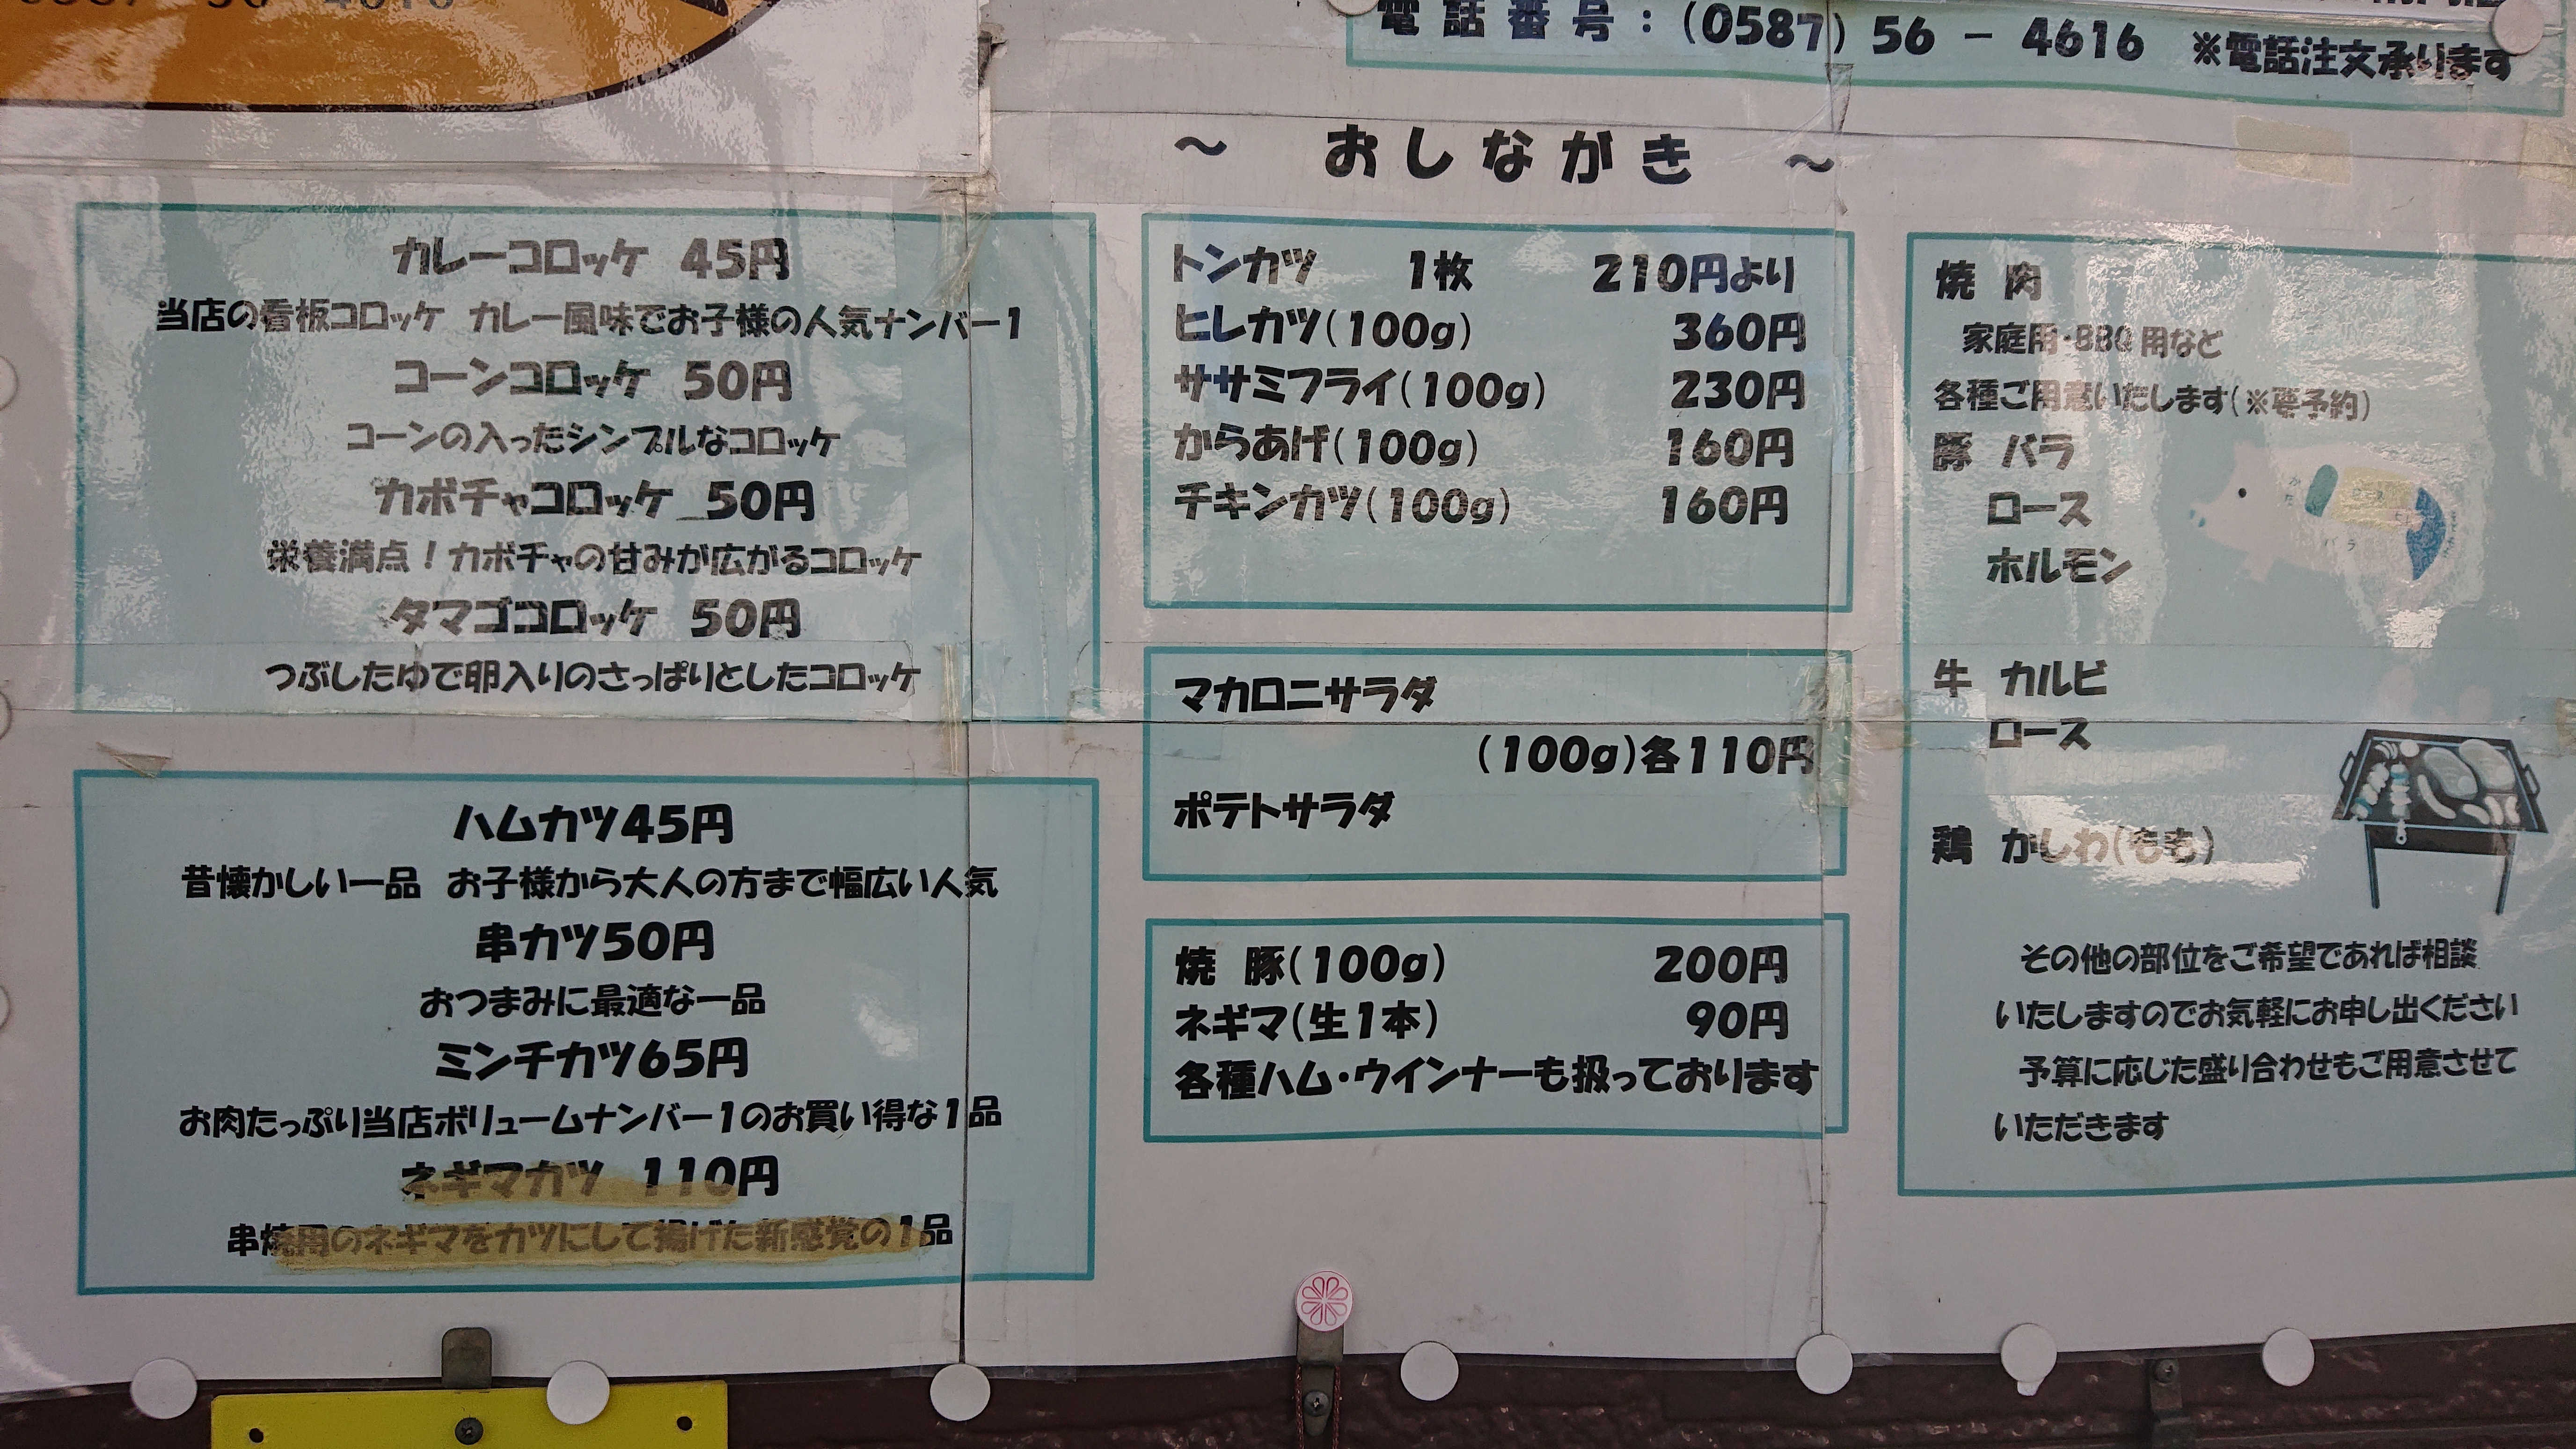 電話番号：(0587) 56 － 4616　※電話注文承ります
～　おしながき　～
カレーコロッケ　45円
当店の看板コロッケ　カレー風味でお子様の人気ナンバー1
コーンコロッケ　50円
コーンの入ったシンプルなコロッケ
カボチャコロッケ　50円
栄養満点！カボチャの甘みが広がるコロッケ
タマゴコロッケ　50円
つぶしたゆで卵入りのさっぱりとしたコロッケ
ハムカツ45円
昔懐かしい一品　お子様から大人の方まで幅広い人気
串カツ50円
おつまみに最適な一品
ミンチカツ65円
お肉たっぷり当店ボリュームナンバー1のお買い得な1品
ネギマカツ　110円
串焼用のネギマをカツにして揚げた新感覚の1品
トンカツ　1枚　210円より
ヒレカツ(100g)　360円
ササミフライ(100g)　230円
からあげ(100g)　160円
チキンカツ(100g)　160円
マカロニサラダ
(100g)各110円
ポテトサラダ
焼　豚(100g)　200円
ネギマ(生1本)　90円
各種ハム・ウインナーも扱っております
焼　肉
家庭用・BBQ用など
各種ご用意いたします(※要予約)
豚　バラ
ロース
ホルモン
牛　カルビ
ロース
鶏　かしわ(もも)
その他の部位をご希望であれば相談
いたしますのでお気軽にお申し出ください
予算に応じた盛り合わせもご用意させて
いただきます